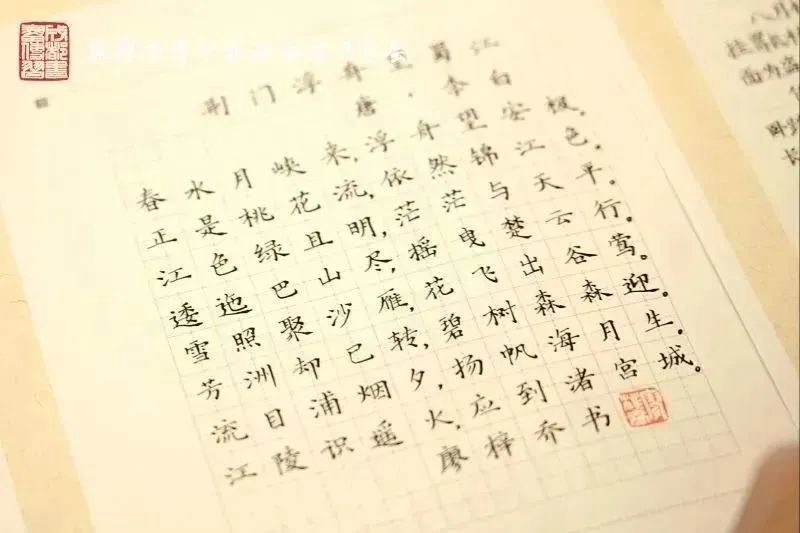 荆门浮舟望蜀江
唐·李白
春水月峡来,浮舟望安极。
正是桃花流,依然锦江色。
江色绿且明,茫茫与天平。
逶迤巴山尽,摇曳楚云行。
雪照聚沙雁,花飞出谷莺。
芳洲却已转,碧树森森迎。
流目浦烟夕,扬帆海月生。
江陵识遥火,应到渚宫城。
廖梓乔书
八月
挂罥长
面为盗
长